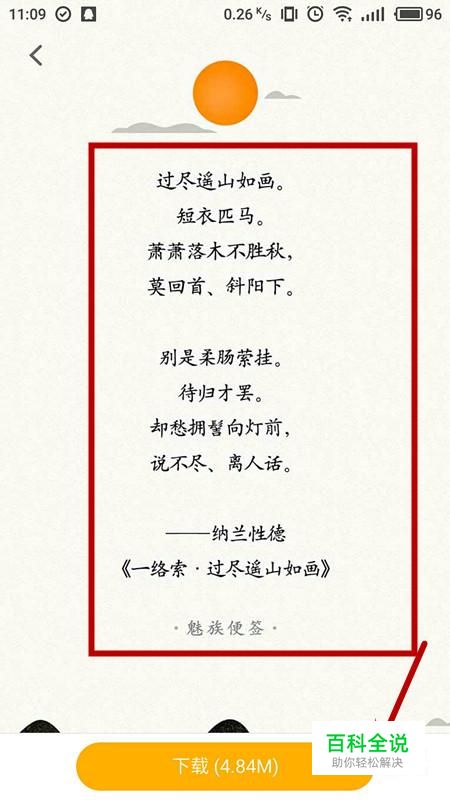 11:09
0.26 K/s
96
过尽遥山如画。
短衣匹马。
萧萧落木不胜秋，
莫回首、斜阳下。
别是柔肠萦挂。
待归才罢。
却愁拥髻向灯前，
说不尽、离人话。
——纳兰性德
《一络索·过尽遥山如画》
·魅族便签·
下载 (4.84M)
百科全说
助你轻松解决